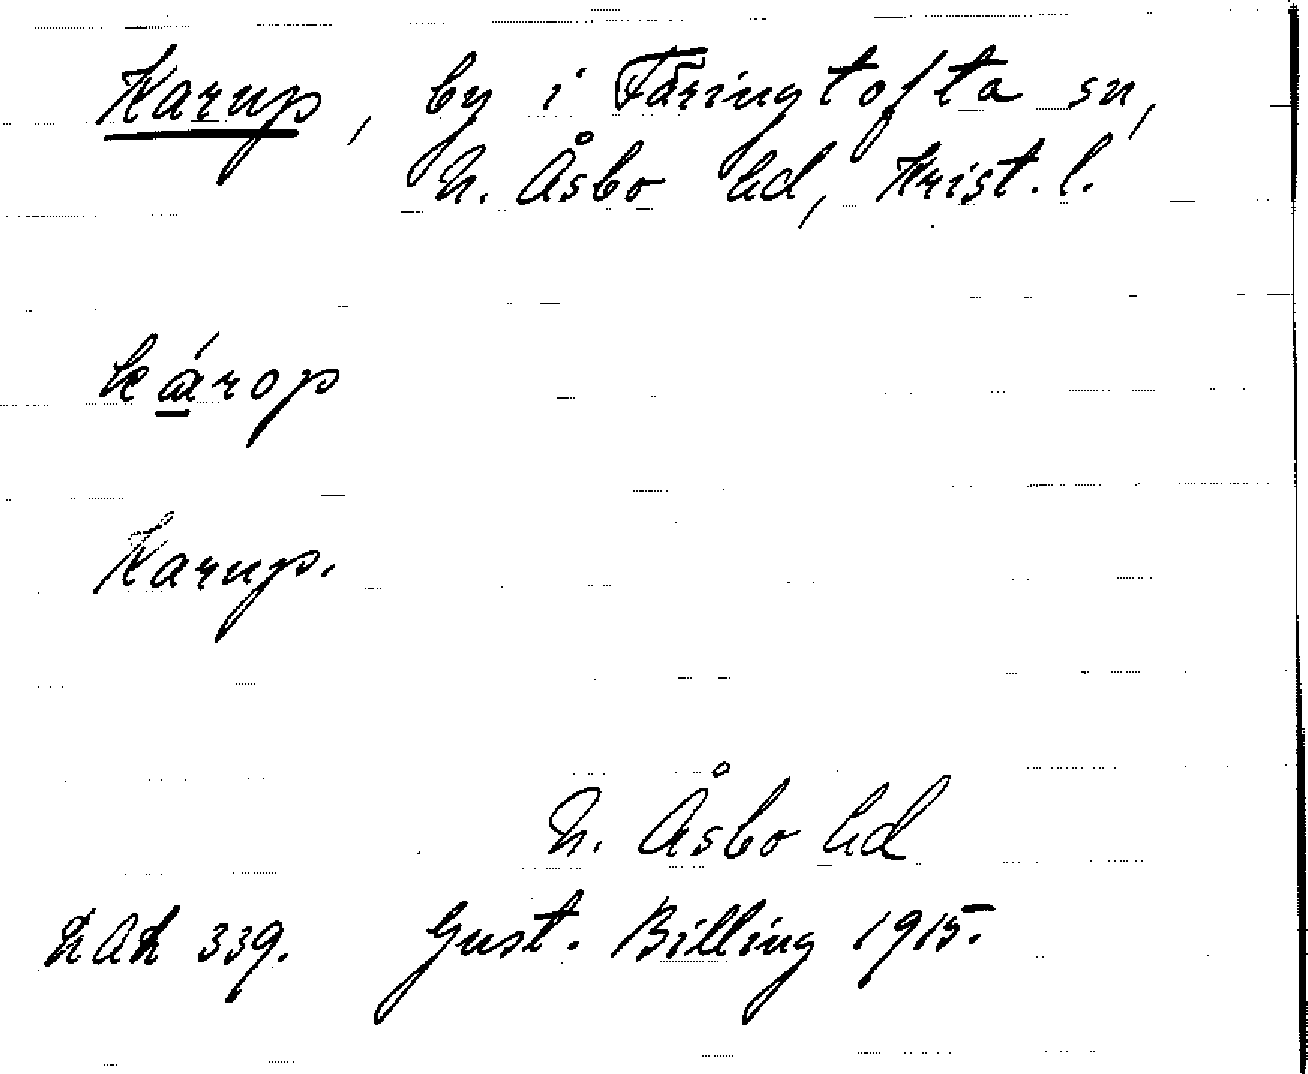 Karup, by i Färingtofta sn,
N. Åsbo hd, Krist. l.
károp
Karup.
N. Åsbo hd
339. Gust. Billing 1915.